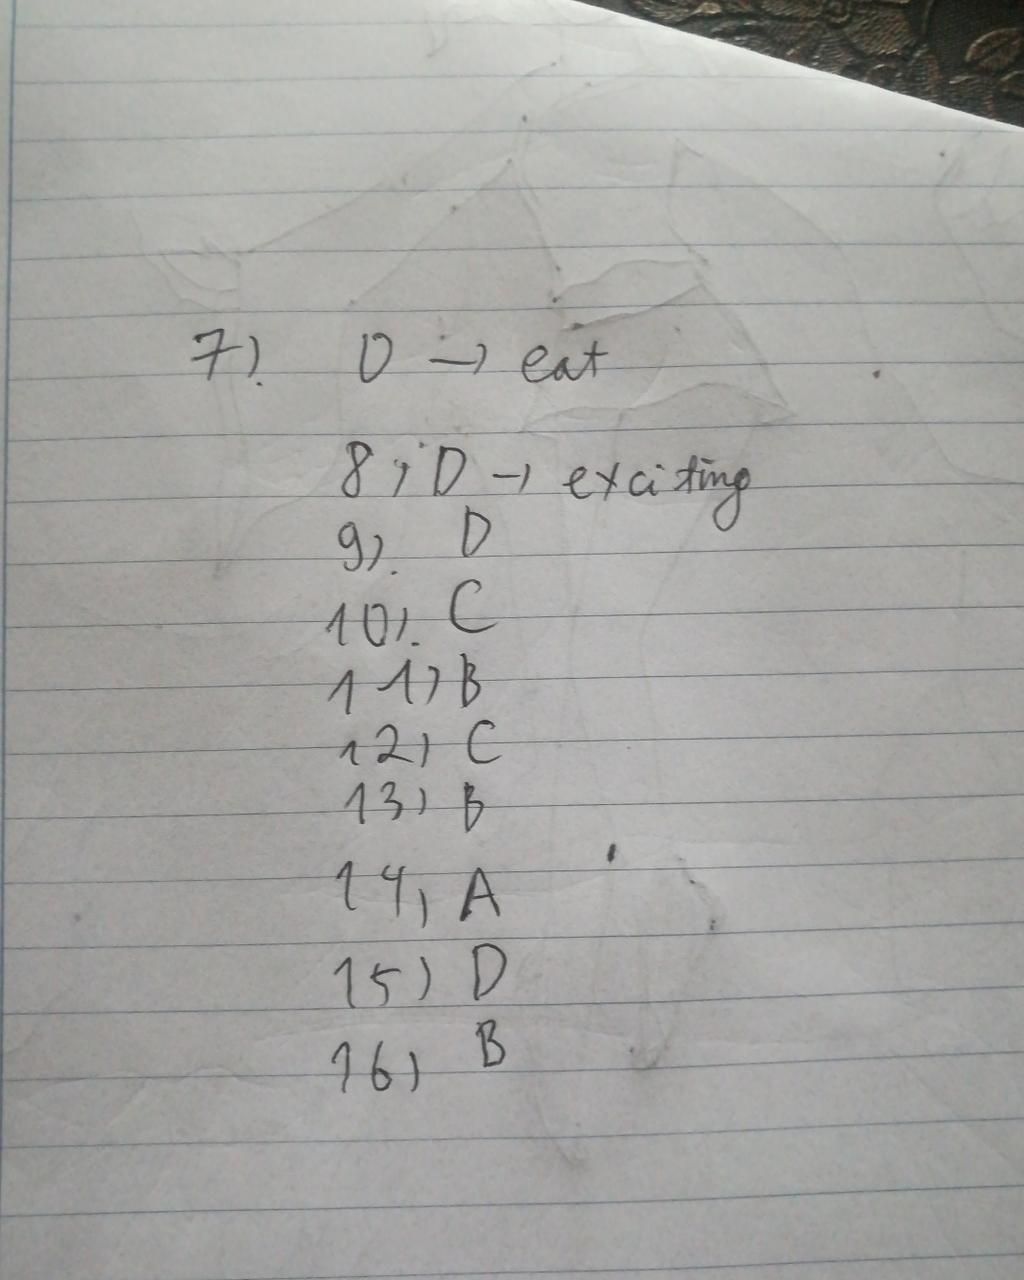 7). D → eat
8, D → exciting
9). D
10). C
11) B
12) C
13) B
14, A
15) D
16) B